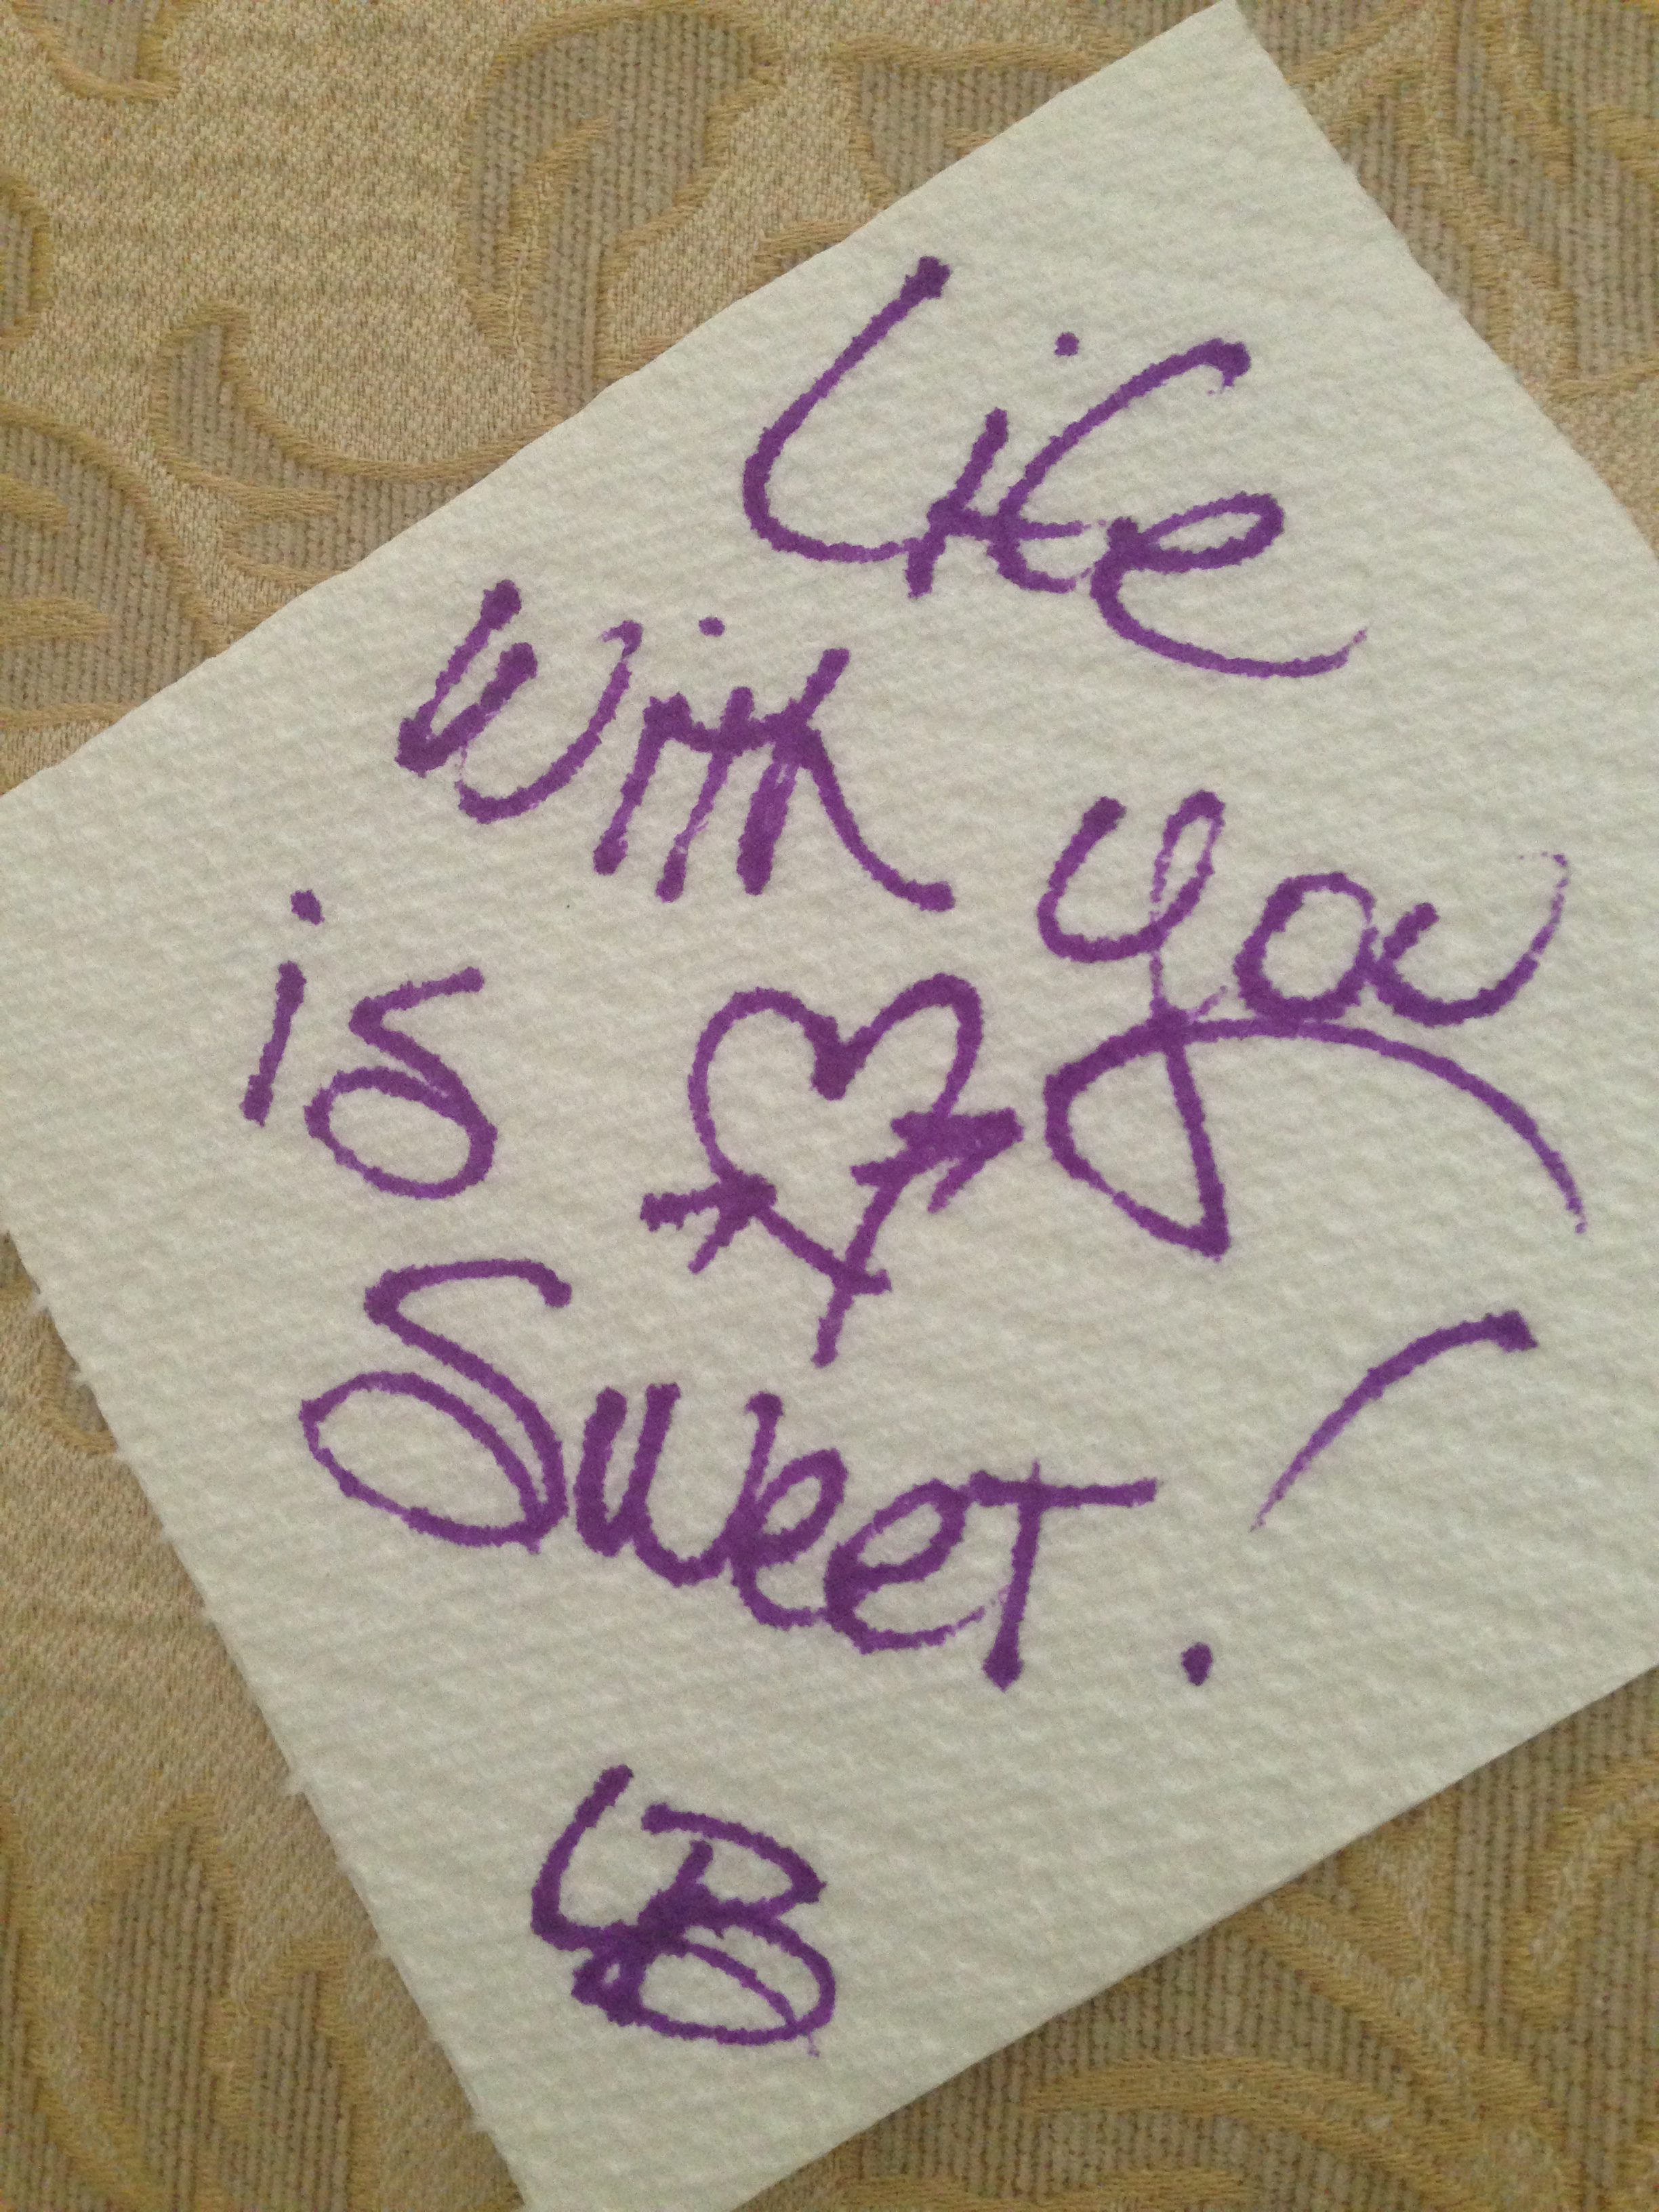 Life
with you
is
Sweet!
LB